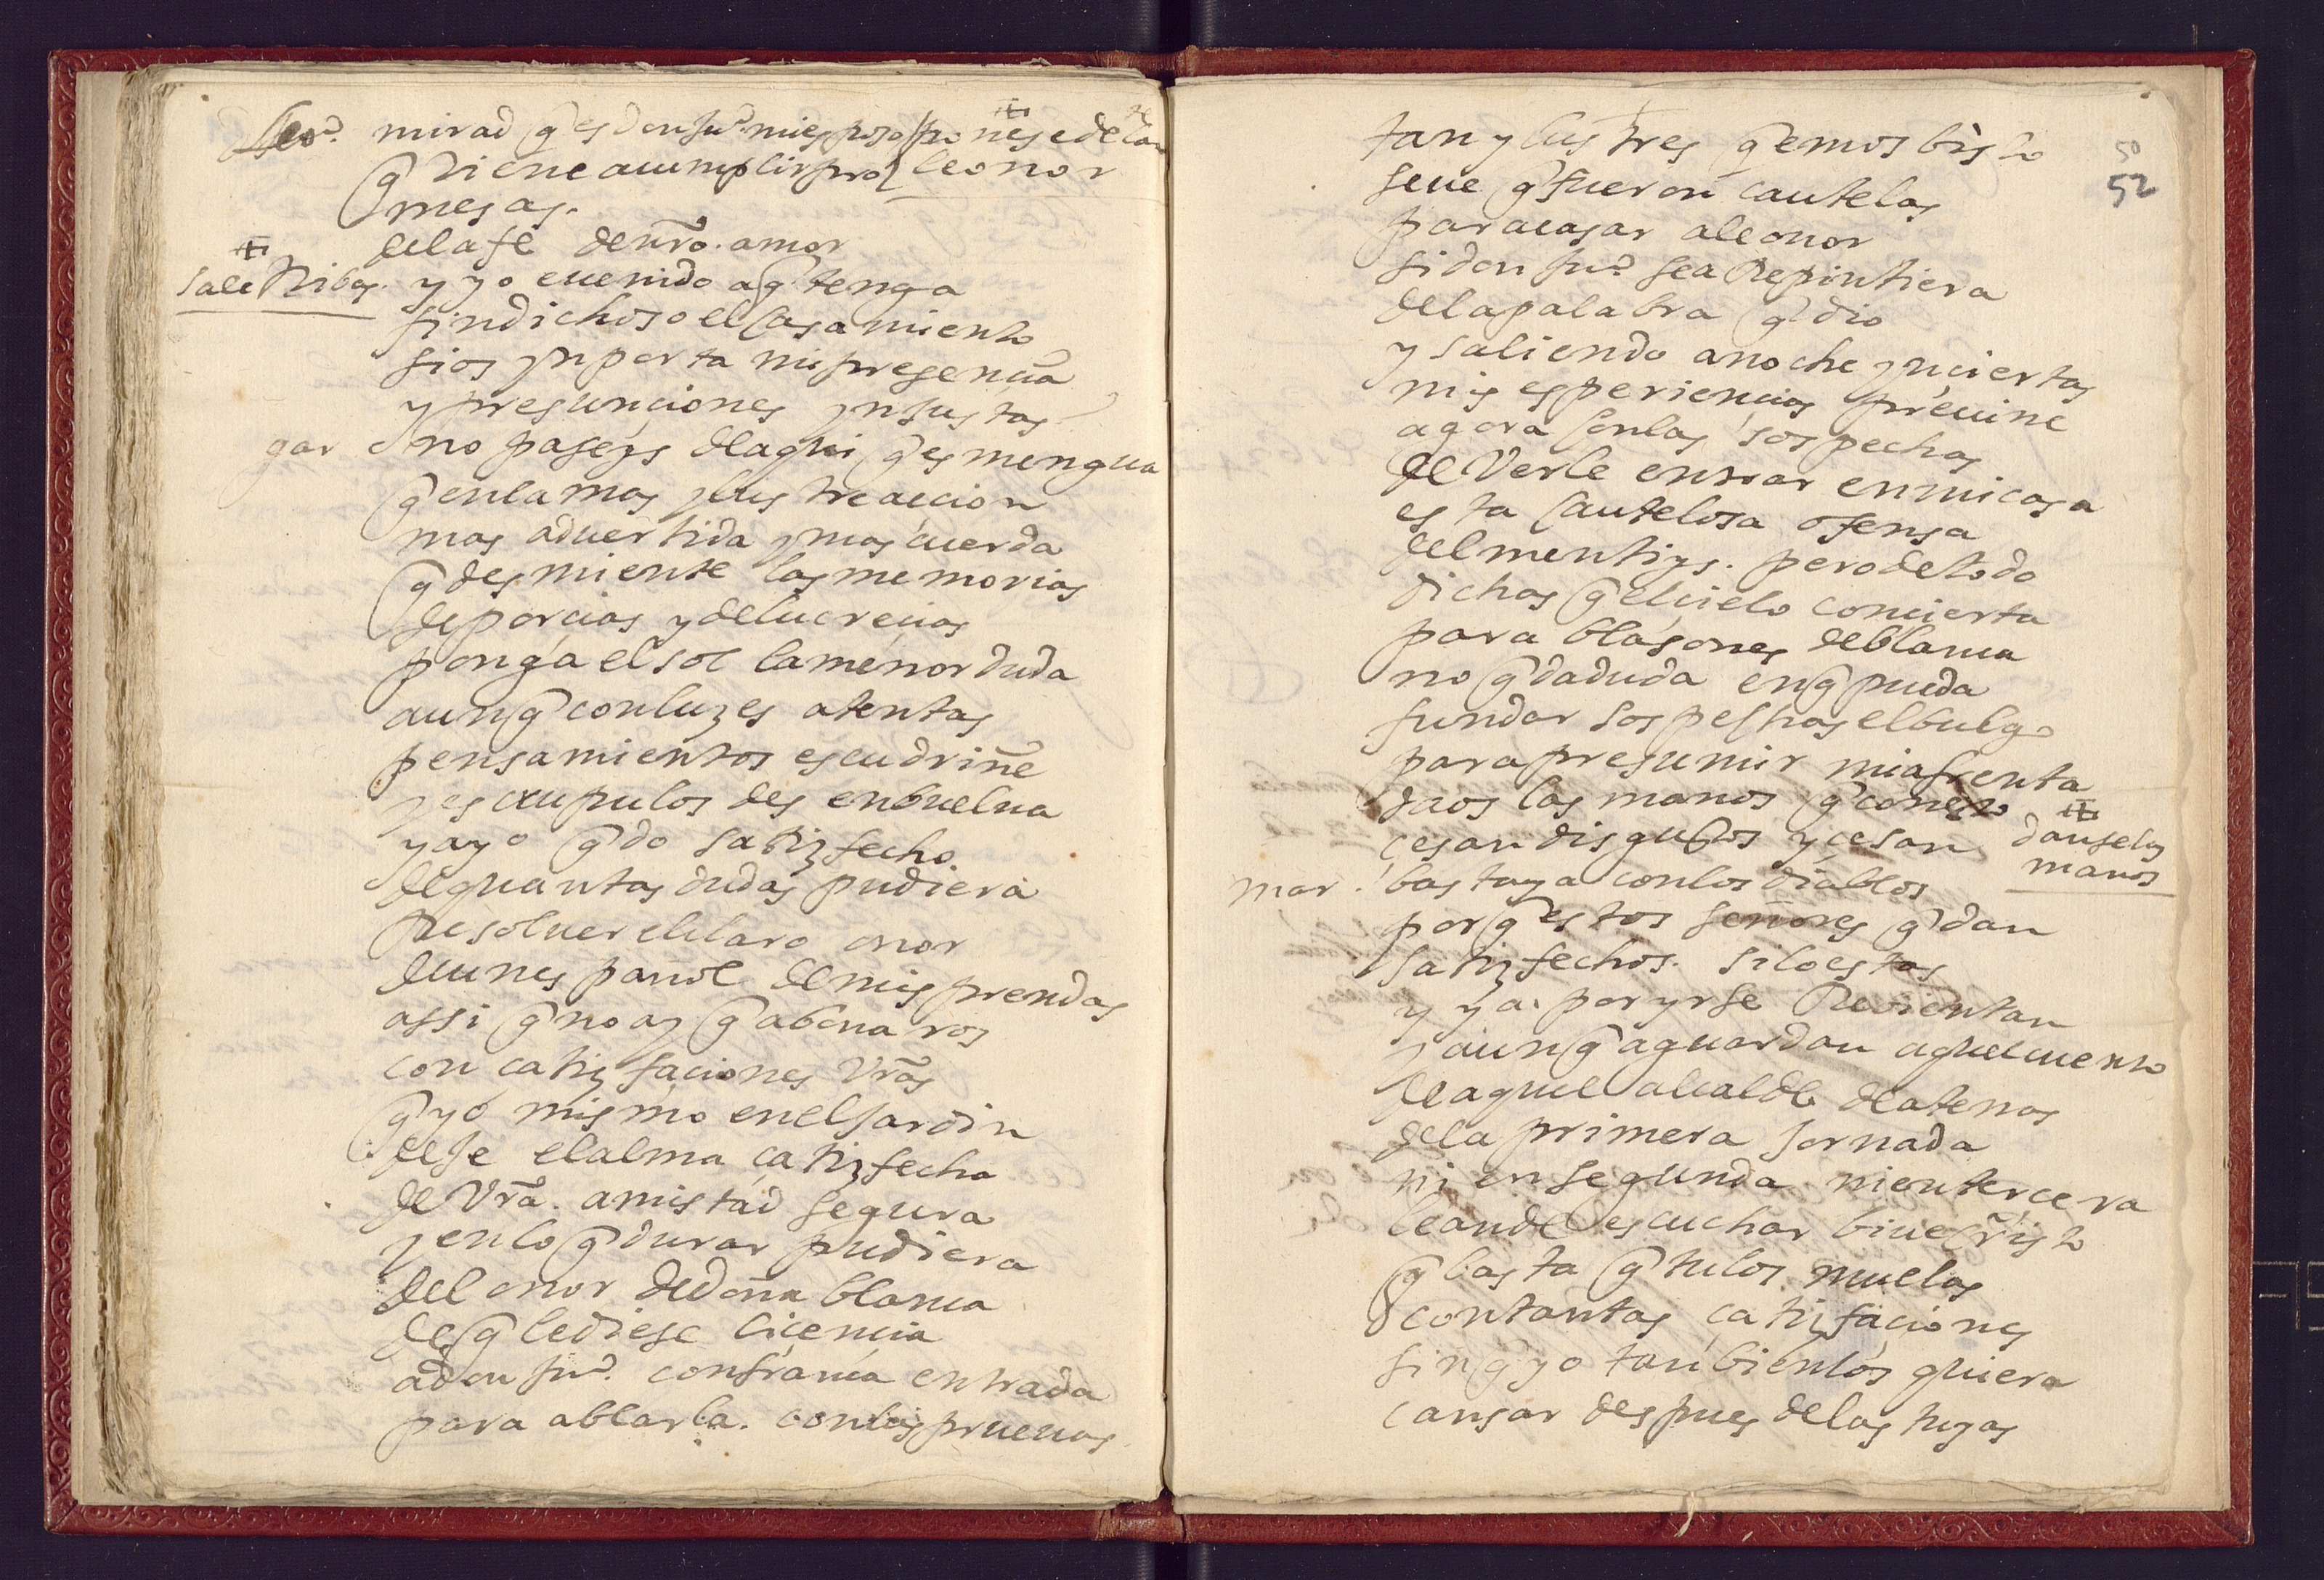 Leor. mirad q̃ es don juº. mi esposo ponesedelan te
q̃ viene a cumplir pro leonor
mesas.
de la fe de nr̃o. amor
sale Ribas. y yo e uenido a q̃ tenga
fin dichoso el casamiento
si os ynporta mi presencia
y presunciones ynjustas
gar no paseys de aqui q̃ es mengua
q̃ en la mas ylustre accion
mas aduertida y mas cuerda
q̃ desmiente las memorias
de porcias y de lucrecias
ponga el sol la menor duda
aunq̃ con luzes atentas
pensamientos escudriñe
y escrupulos desenbuelua
ya yo q̃do satizfecho
de quantas dudas pudiera
Resoluer el claro onor
de un español de mis prendas
assi q̃ no ay q̃ abonaros
con catizfaciones vr̃as
q̃ yo mismo en el jardin
dese el alma çatizfecha
de vr̃a. amistad segura
y en lo q̃ durar pudiera
del onor de doña blanca
de q̃ le diese licencia
a don juº. con franca entrada
para ablarla. con las prueuas
50
52
tan ylustres q̃ emos bisto
se ue q̃ fueron cautelas
para casar a leonor
si don juº se a Repintiera
de la palabra q̃ dio
y saliendo anoche ynciertas
mis esperiencias preuine
agora con las sospechas
de verle entrar en mi casa
esta cautelosa ofensa
del mentiys. pero de todo
dichas q̃ el cielo concierta
para blasones de blanca
no q̃da duda en q̃ pueda
fundar sospechas el bulgo
para presumir mi afrenta
daos las manos q̃ con esto
cesan disgustos y cesan danse las
manos
mar. basta ya con los diablos
porq̃ estos señores q̃dan
satizfechos. si lo estas
y ya. por yrse Reuientan
y aunq̃ aguardan aquel cuento
de aquel alcalde de atenas
de la primera jornada
ni en segunda ni en tercera
le an de escuchar biue cr̃isto
q̃ basta q̃ tu los muelas
con tantas çatizfaciones
sin q̃ yo tanbien los quiera
cansar despues de las tuyas